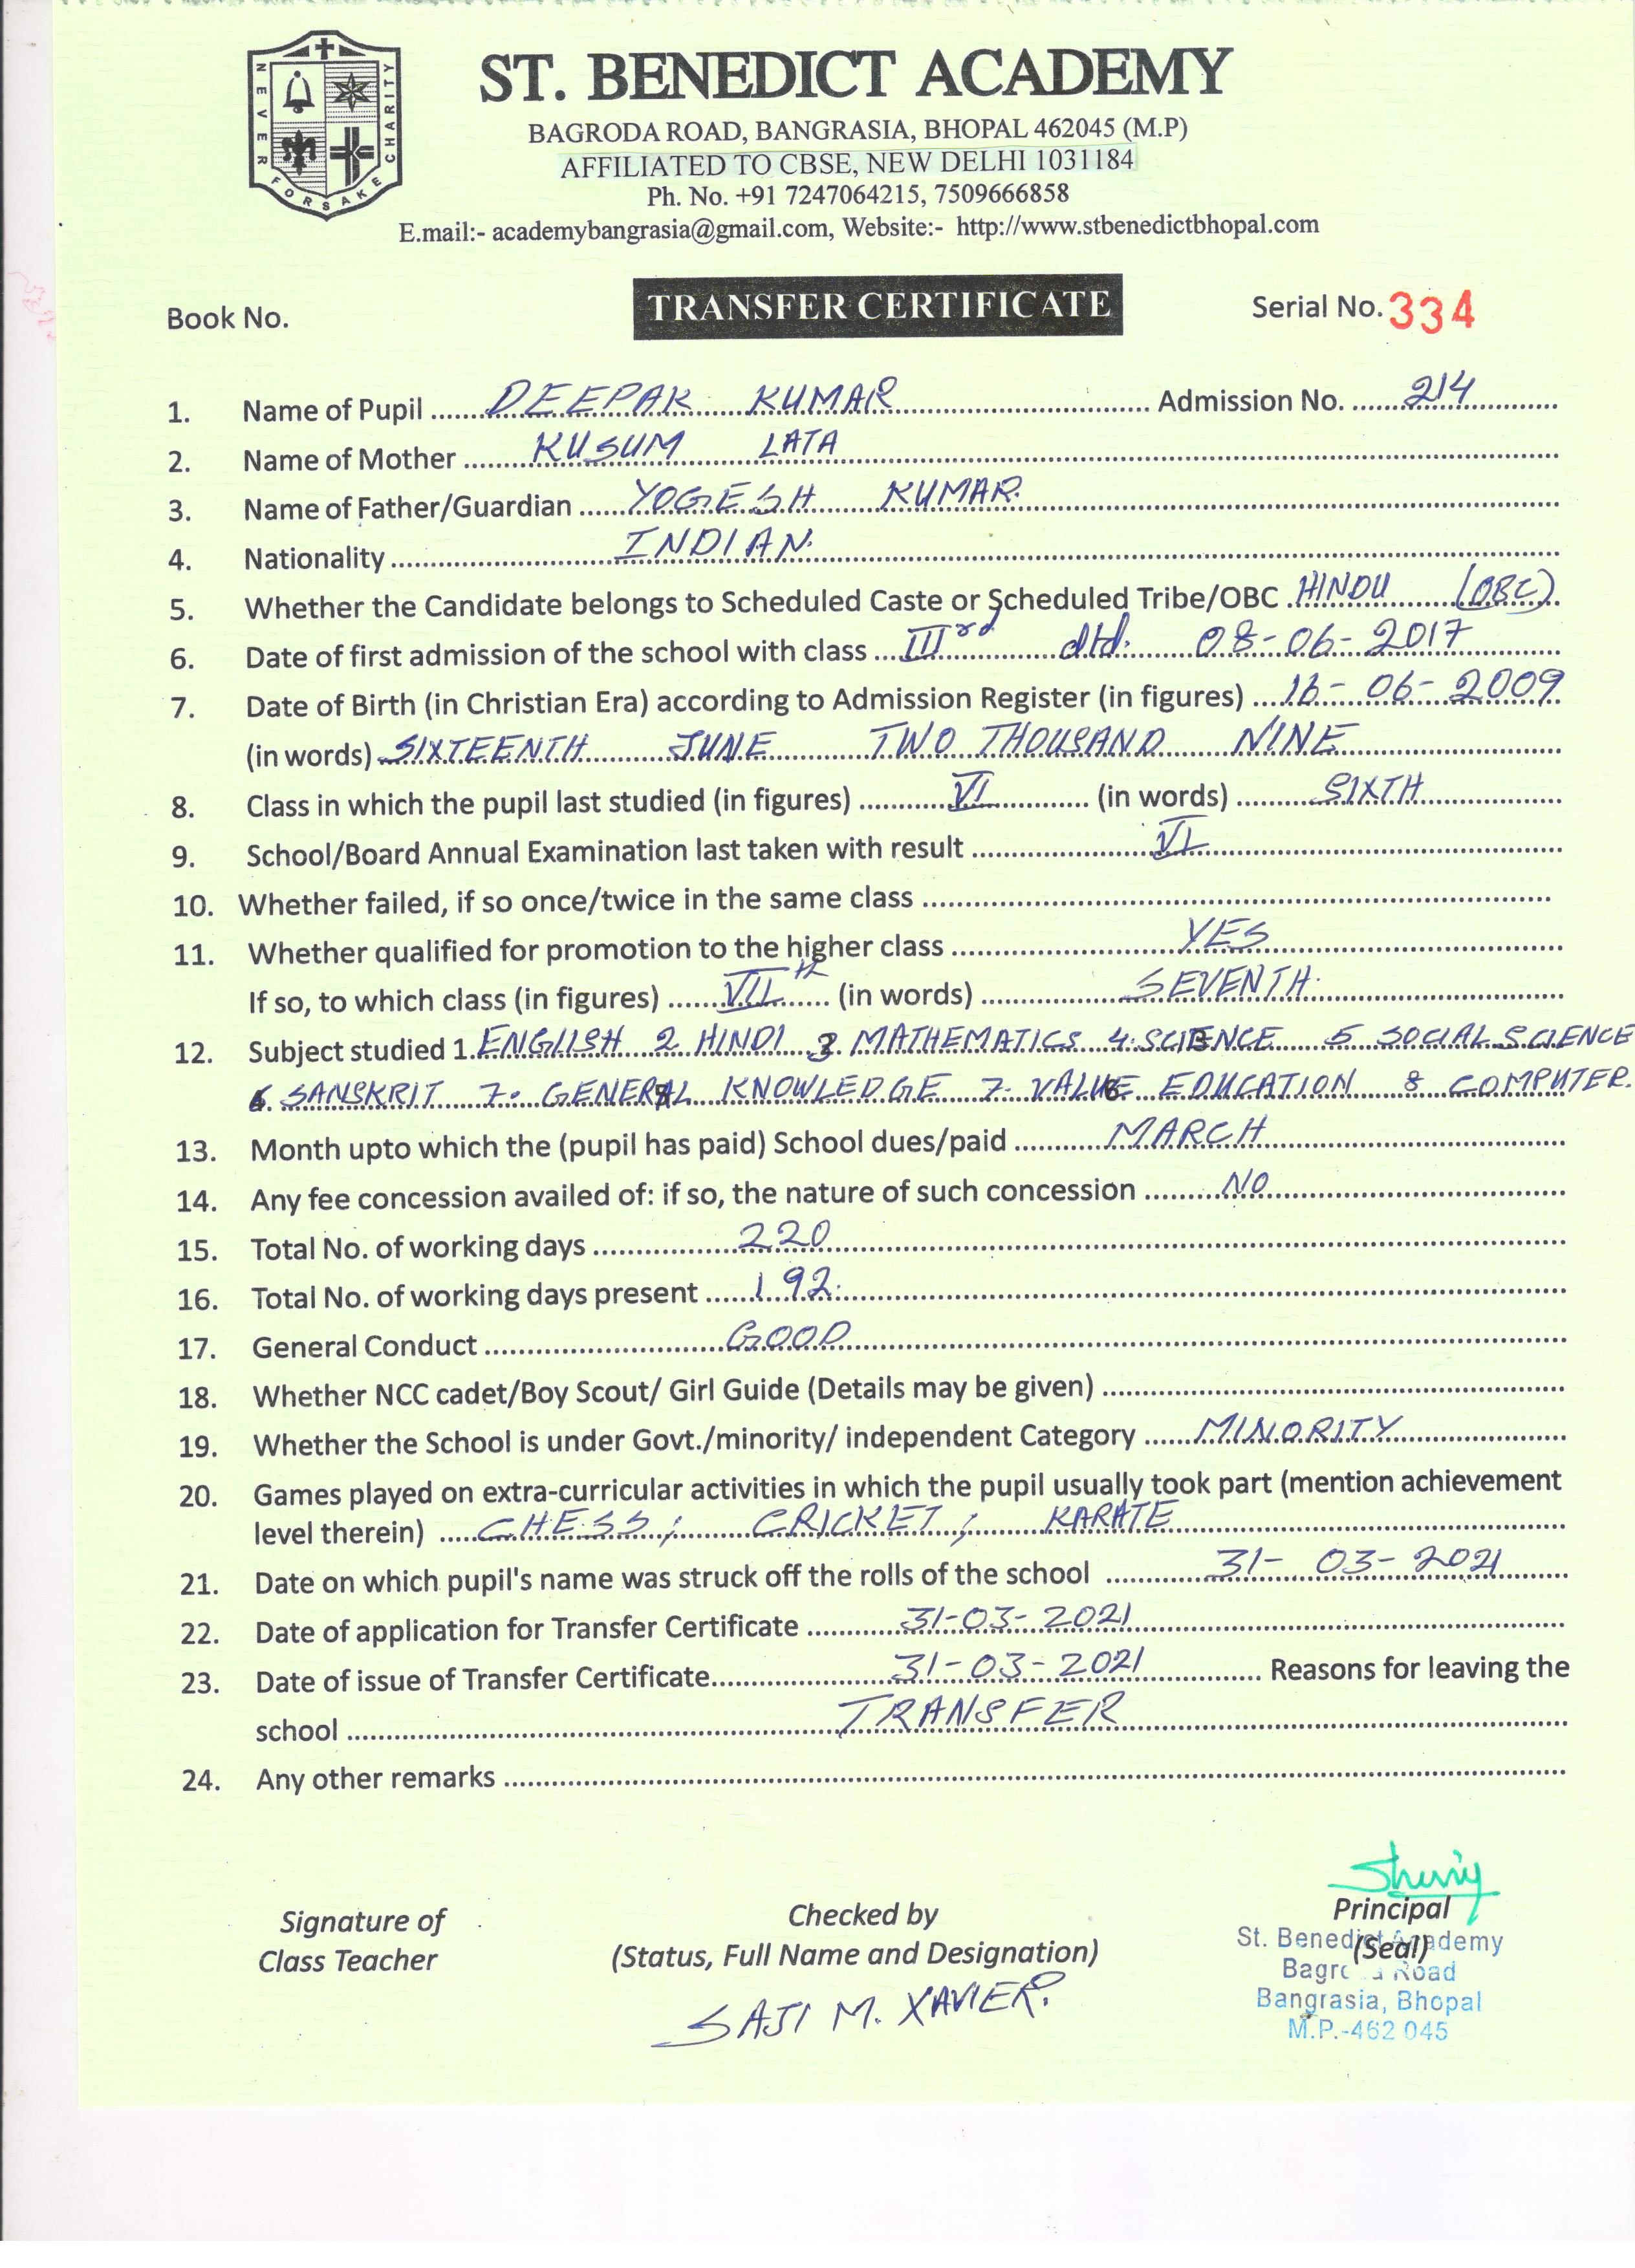 NEVER FORSAKE CHARITY
ST. BENEDICT ACADEMY
BAGRODA ROAD, BANGRASIA, BHOPAL 462045 (M.P)
AFFILIATED TO CBSE, NEW DELHI 1031184
Ph. No. +91 7247064215, 7509666858
E.mail:- academybangrasia@gmail.com, Website:- http://www.stbenedictbhopal.com
Book No. TRANSFER CERTIFICATE Serial No. 334
1. Name of Pupil DEEPAK KUMAR Admission No. 214
2. Name of Mother KUSUM LATA
3. Name of Father/Guardian YOGESH KUMAR
4. Nationality INDIAN
5. Whether the Candidate belongs to Scheduled Caste or Scheduled Tribe/OBC HINDU (OBC)
6. Date of first admission of the school with class IIIrd dtd. 08-06-2017
7. Date of Birth (in Christian Era) according to Admission Register (in figures) 16-06-2009
(in words) SIXTEENTH JUNE TWO THOUSAND NINE
8. Class in which the pupil last studied (in figures) VI (in words) SIXTH
9. School/Board Annual Examination last taken with result VI
10. Whether failed, if so once/twice in the same class
11. Whether qualified for promotion to the higher class YES
If so, to which class (in figures) VIIth (in words) SEVENTH.
12. Subject studied 1. ENGLISH 2 HINDI 3 MATHEMATICS 4. SCIENCE 5 SOCIAL SCIENCE
6. SANSKRIT 7. GENERAL KNOWLEDGE 7. VALUE EDUCATION 8 COMPUTER.
13. Month upto which the (pupil has paid) School dues/paid MARCH
14. Any fee concession availed of: if so, the nature of such concession NO
15. Total No. of working days 220
16. Total No. of working days present 192.
17. General Conduct GOOD
18. Whether NCC cadet/Boy Scout/ Girl Guide (Details may be given)
19. Whether the School is under Govt./minority/ independent Category MINORITY
20. Games played on extra-curricular activities in which the pupil usually took part (mention achievement
level therein) CHESS; CRICKET; KARATE
21. Date on which pupil's name was struck off the rolls of the school 31-03-2021
22. Date of application for Transfer Certificate 31-03-2021
23. Date of issue of Transfer Certificate 31-03-2021 Reasons for leaving the
school TRANSFER
24. Any other remarks
Signature of Class Teacher
Checked by
(Status, Full Name and Designation)
SAJI M. XAVIER.
Principal
(Seal)
St. Benedict Academy
Road
Bangrasia, Bhopal
M.P.-462 045